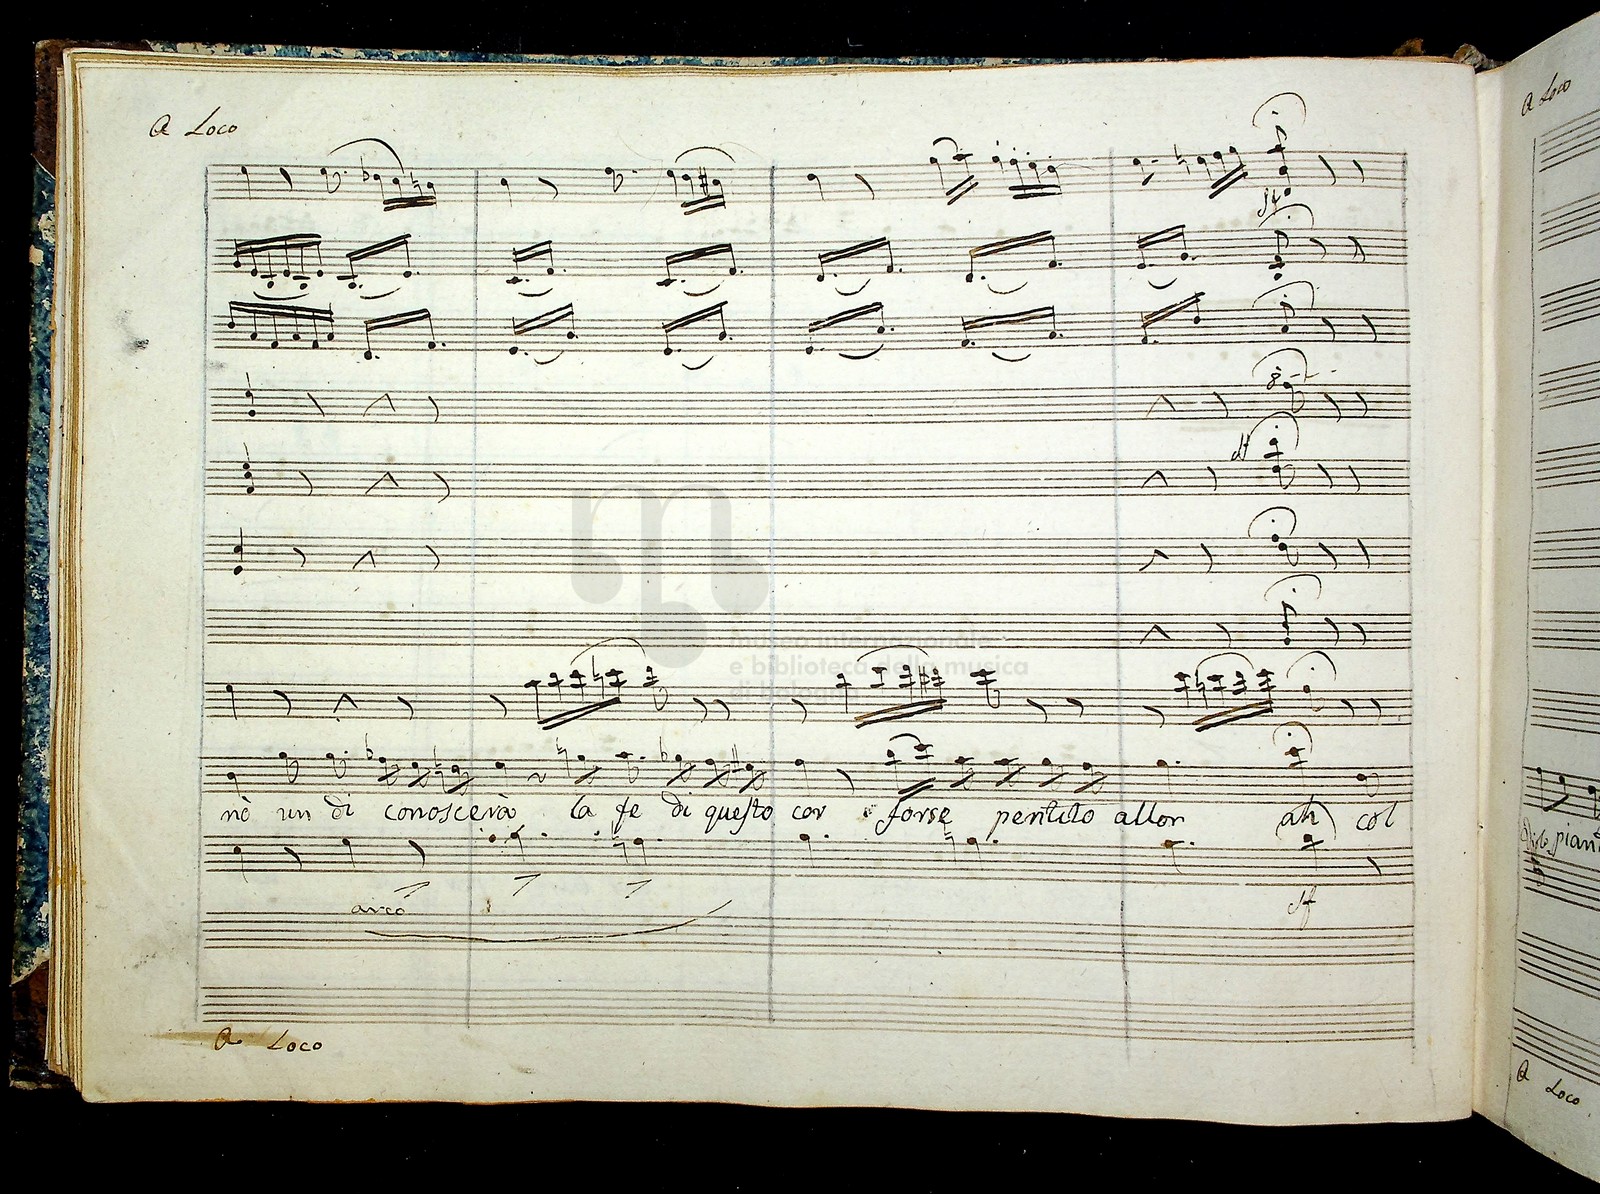 a Loco
a Loco
sf
8
sf
museo internazionale
e biblioteca della musica
di bologna
nò un di conoscerà la fe di questo cor forse pentito allor ah col
pian
arco
sf
a Loco
a Loco